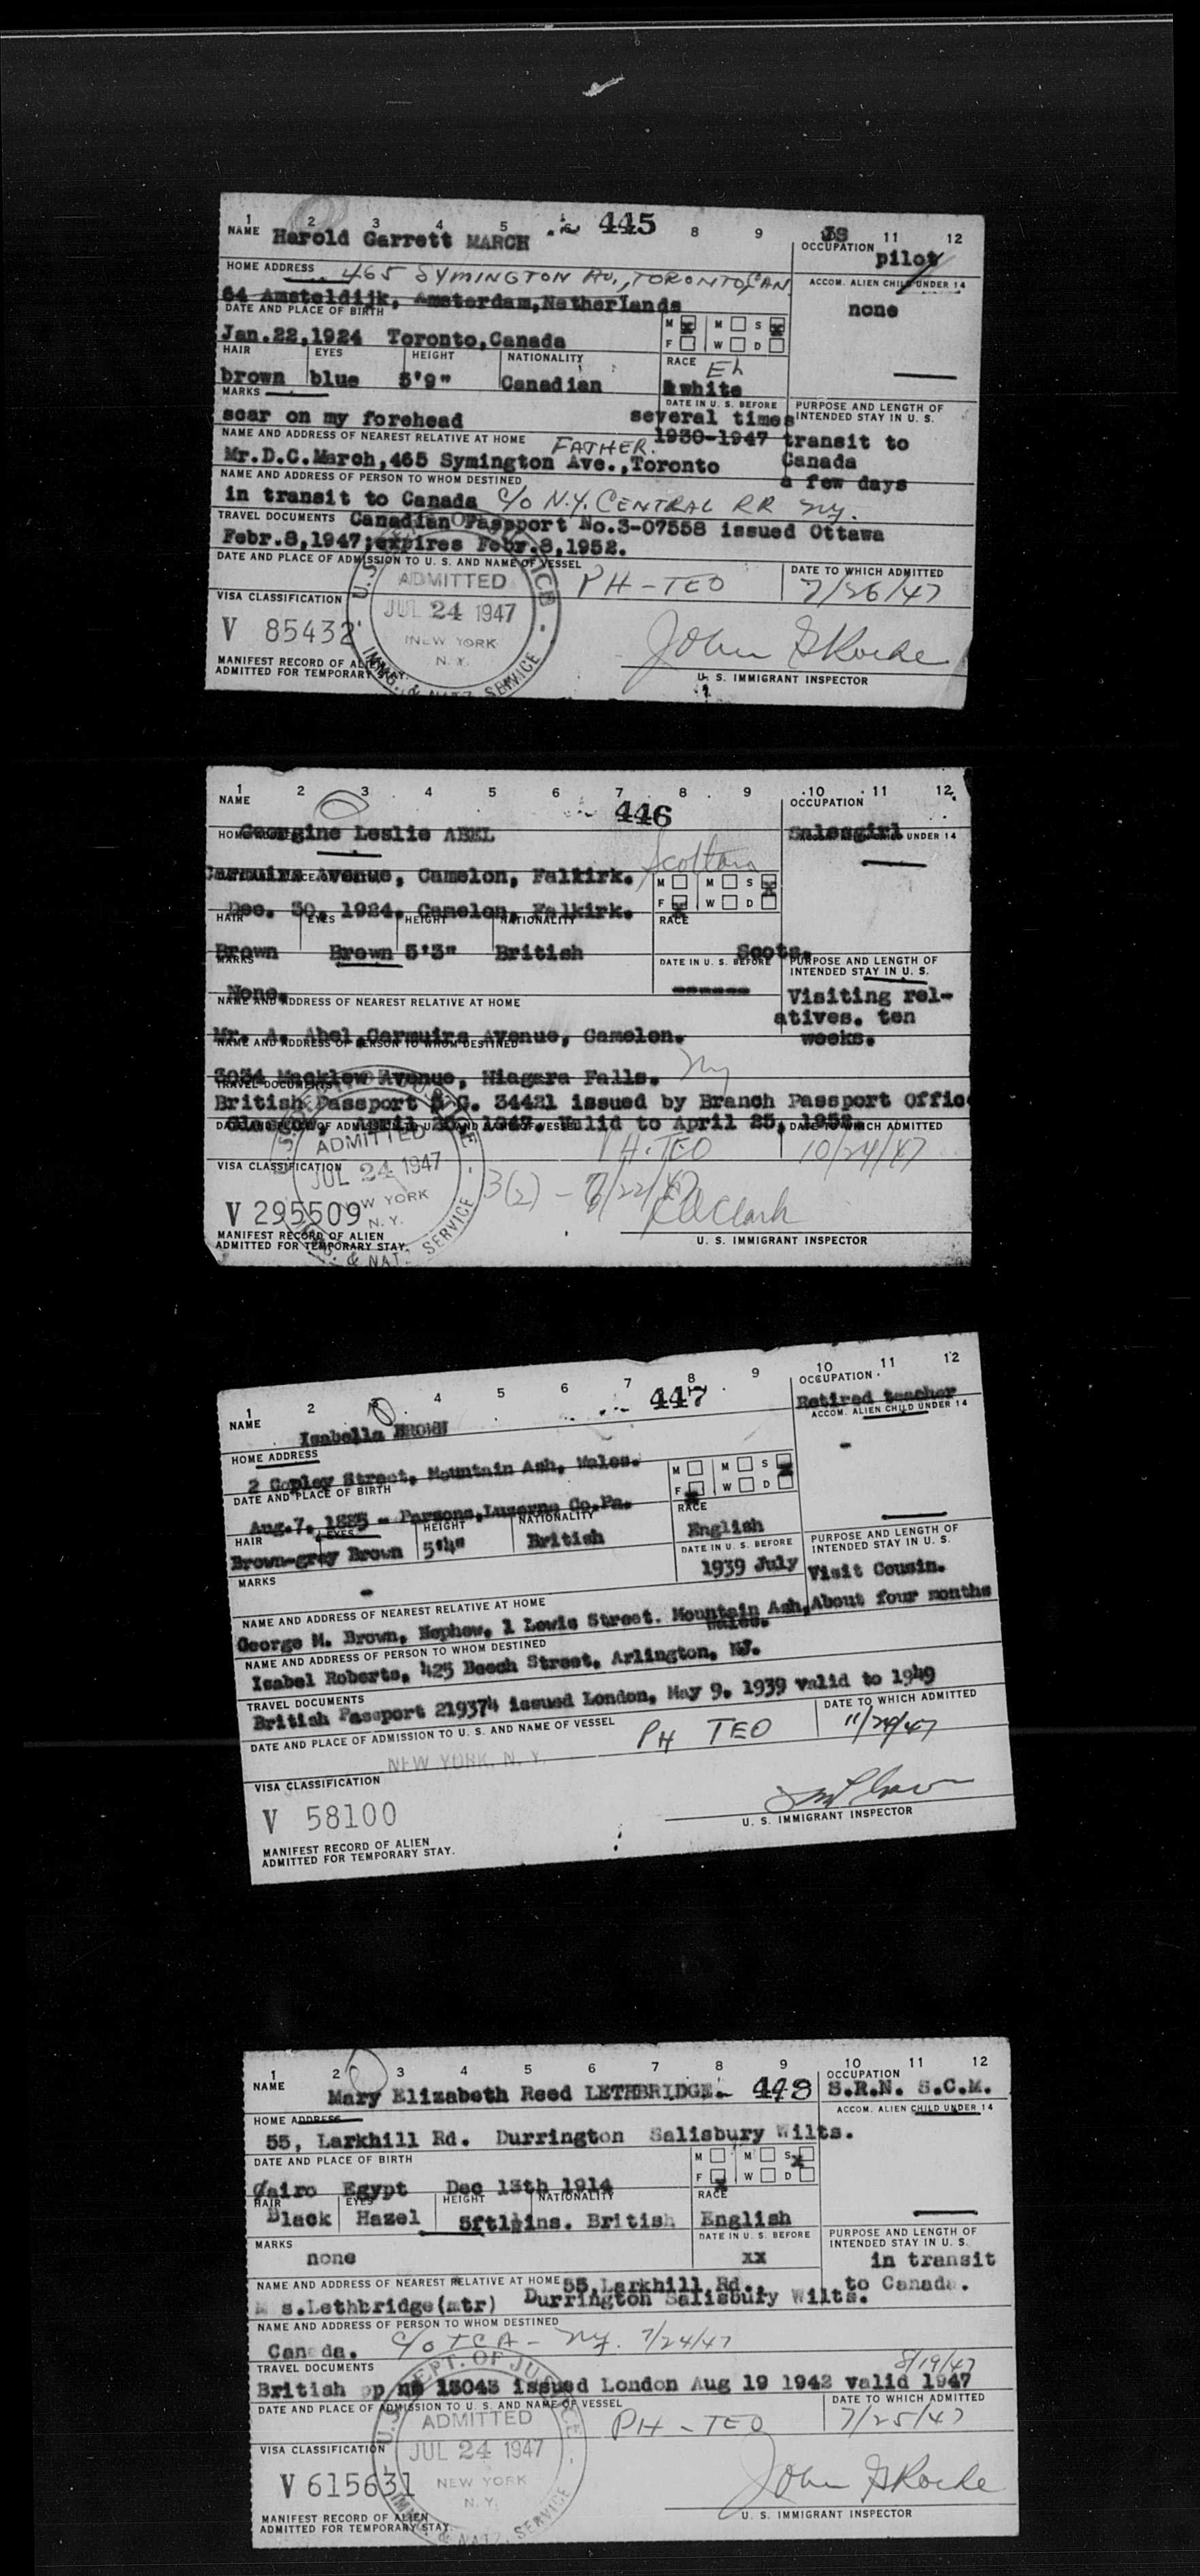 1 2 3 4 5 445 8 9 11 12
NAME Harold Garrett MARCH
OCCUPATION
pilot
HOME ADDRESS 465 SYMINGTON AV., TORONTO, CAN
ACCOM. ALIEN CHILD UNDER 14
64 Amsteldijk, Amsterdam, Netherlands
none
DATE AND PLACE OF BIRTH
M M S
Jan.22,1924 Toronto, Canada
F W D
HAIR EYES HEIGHT NATIONALITY RACE
brown blue 5'9" Canadian white
MARKS
DATE IN U. S. BEFORE PURPOSE AND LENGTH OF INTENDED STAY IN U. S.
scar on my forehead several times
NAME AND ADDRESS OF NEAREST RELATIVE AT HOME FATHER. 1930-1947 transit to
Mr.D.C.March,465 Symington Ave.,Toronto Canada
NAME AND ADDRESS OF PERSON TO WHOM DESTINED a few days
in transit to Canada C/O N.Y. CENTRAL RR NY.
TRAVEL DOCUMENTS Canadian Passport No.3-07558 issued Ottawa
Febr.8,1947;expires Febr.8,1952.
DATE AND PLACE OF ADMISSION TO U. S. AND NAME OF VESSEL DATE TO WHICH ADMITTED
ADMITTED PH-TEO 7/26/47
VISA CLASSIFICATION JUL 24 1947
V 85432 NEW YORK N. Y.
John G Roche
MANIFEST RECORD OF ALIEN
ADMITTED FOR TEMPORARY STAY.
IMMG. & NATZ. SERVICE
U. S. IMMIGRANT INSPECTOR
1 2 3 4 5 6 7 8 9 10 11 12
NAME 446 OCCUPATION
Georgine Leslie ABEL Salesgirl
UNDER 14
Carmuirs Avenue, Camelon, Falkirk.
M M S
Dec. 30, 1924. Camelon, Falkirk.
F W D
HAIR EYES HEIGHT NATIONALITY RACE
Brown Brown 5'3" British Scots.
MARKS DATE IN U. S. BEFORE PURPOSE AND LENGTH OF INTENDED STAY IN U. S.
None.
NAME AND ADDRESS OF NEAREST RELATIVE AT HOME
Visiting relatives. ten weeks.
Mr. A. Abel, Carmuirs Avenue, Camelon.
NAME AND ADDRESS OF PERSON TO WHOM DESTINED
3034 Macklow Avenue, Niagara Falls. NY
TRAVEL DOCUMENTS
British Passport 34421 issued by Branch Passport Office
1947. Valid to April 25, 1952.
DATE TO WHICH ADMITTED
ADMITTED PH-TEO 10/24/47
VISA CLASSIFICATION JUL 24 1947
V 295509 NEW YORK N. Y.
MANIFEST RECORD OF ALIEN
ADMITTED FOR TEMPORARY STAY.
& NATZ. SERVICE
U. S. IMMIGRANT INSPECTOR
1 2 3 4 5 6 7 8 9 10 11 12
NAME 447 OCCUPATION
Isabella BROWN Retired teacher
HOME ADDRESS ACCOM. ALIEN CHILD UNDER 14
2 Copley Street, Mountain Ash, Wales. -
DATE AND PLACE OF BIRTH
M M S
Aug.7. 1885 - Parsons, Luzerne Co.Pa.
F W D
HAIR EYES HEIGHT NATIONALITY RACE
Brown-grey Brown 5'4" British English
MARKS DATE IN U. S. BEFORE PURPOSE AND LENGTH OF INTENDED STAY IN U. S.
- 1939 July Visit Cousin.
NAME AND ADDRESS OF NEAREST RELATIVE AT HOME
George M. Brown, Nephew, 1 Lewis Street. Mountain Ash, Wales. About four months
NAME AND ADDRESS OF PERSON TO WHOM DESTINED
Isabel Roberts, 425 Beech Street, Arlington, NJ.
TRAVEL DOCUMENTS
British Passport 219374 issued London, May 9. 1939 valid to 1949
DATE AND PLACE OF ADMISSION TO U. S. AND NAME OF VESSEL DATE TO WHICH ADMITTED
NEW YORK, N. Y. PH TEO 11/24/47
VISA CLASSIFICATION
V 58100
U. S. IMMIGRANT INSPECTOR
MANIFEST RECORD OF ALIEN
ADMITTED FOR TEMPORARY STAY.
1 2 3 4 5 6 7 8 9 10 11 12
NAME OCCUPATION
Mary Elizabeth Reed LETHBRIDGE. 448 S.R.N. S.C.M.
HOME ADDRESS ACCOM. ALIEN CHILD UNDER 14
55, Larkhill Rd. Durrington Salisbury Wilts.
DATE AND PLACE OF BIRTH M M S
Cairo Egypt Dec 13th 1914 F W D
HAIR EYES HEIGHT NATIONALITY RACE
Black Hazel 5ft1½ins. British English
MARKS DATE IN U. S. BEFORE PURPOSE AND LENGTH OF INTENDED STAY IN U. S.
none xx in transit to Canada.
NAME AND ADDRESS OF NEAREST RELATIVE AT HOME 55, Larkhill Rd.
Mrs.Lethbridge(mtr) Durrington Salisbury Wilts.
NAME AND ADDRESS OF PERSON TO WHOM DESTINED
Canada. C/O TCA - NY. 7/24/47
TRAVEL DOCUMENTS 8/19/47
British pp no 13043 issued London Aug 19 1942 valid 1947
DATE AND PLACE OF ADMISSION TO U. S. AND NAME OF VESSEL DATE TO WHICH ADMITTED
ADMITTED PH-TEO 7/25/47
VISA CLASSIFICATION JUL 24 1947
V 615631 NEW YORK N. Y.
John G Roche
U. S. IMMIGRANT INSPECTOR
MANIFEST RECORD OF ALIEN
ADMITTED FOR TEMPORARY STAY